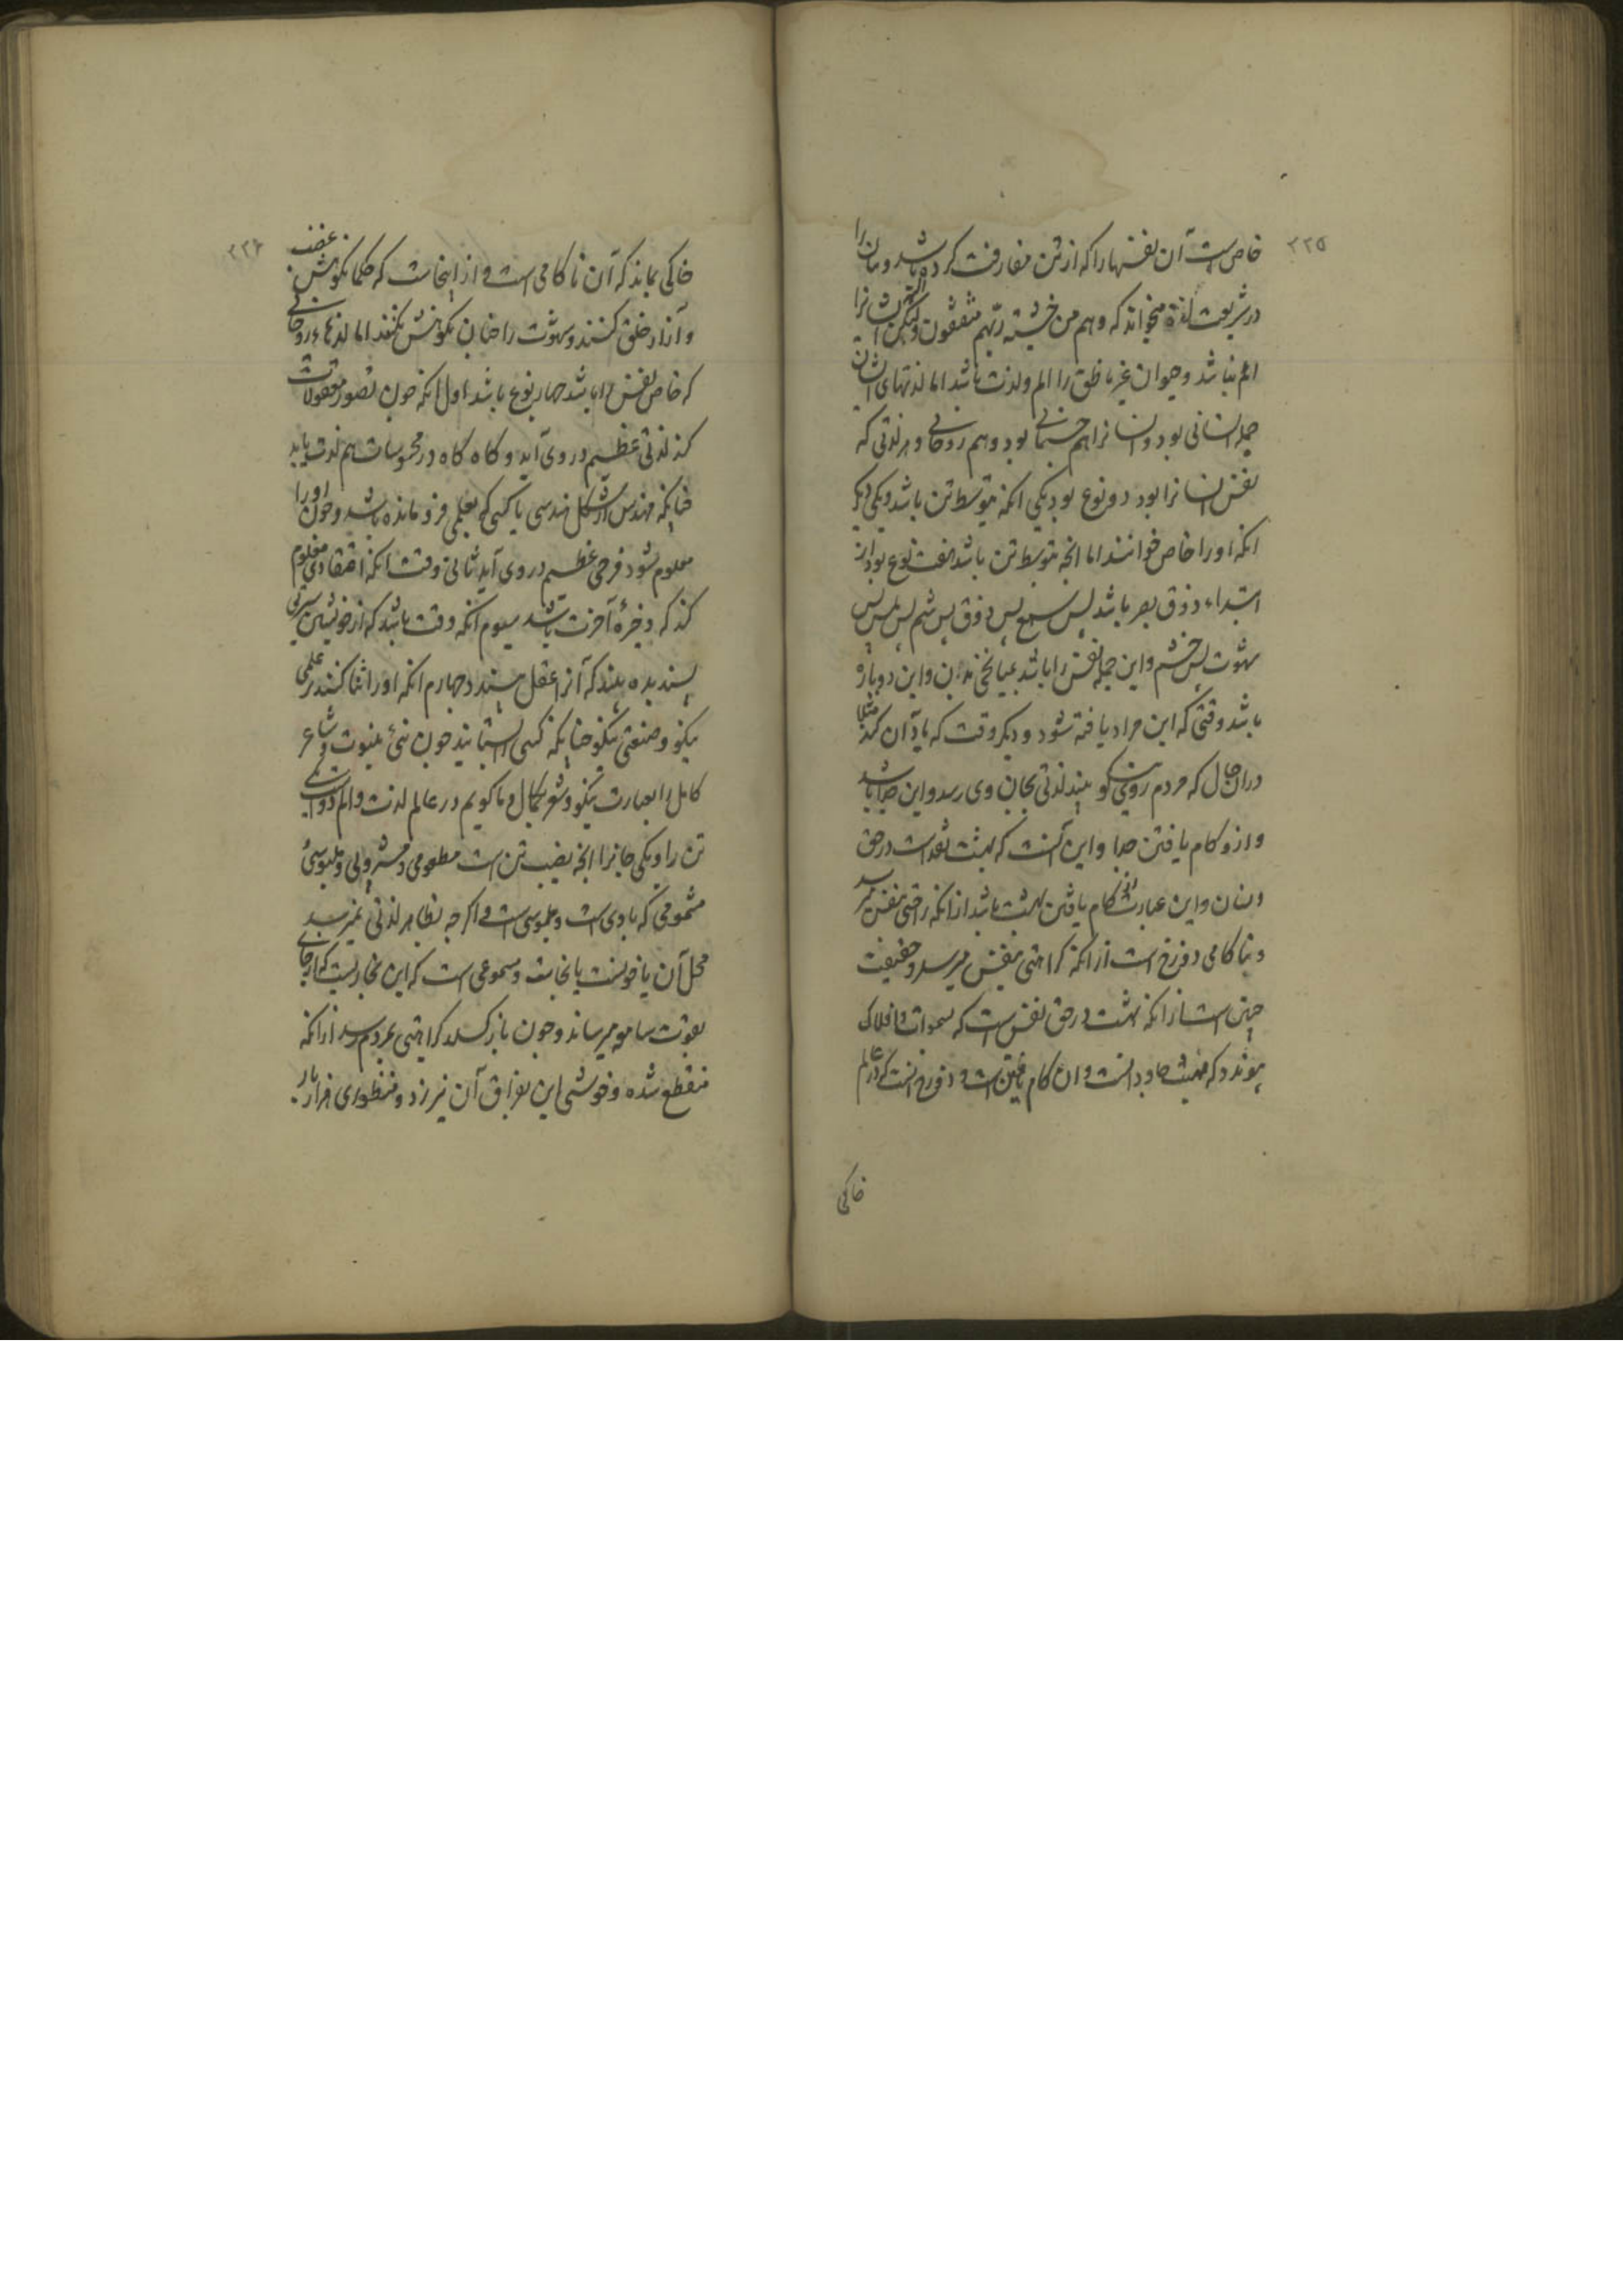 ۲۲۵
خاص است آن نفسها را که از تن مفارقت کرده باشد و مان را
در شریعت لذة میخواند که وهم من خشیته ربهم مشفقون ولیکن ایشانرا
الم نباشد و حیوان غیر ناطق را الم و لذت باشد اما لذتهای ایشان
جمله انسانی بود و انسانرا هم جسمانی بود و هم روحانی و هر لذتی که
نفس انسانرا بود دو نوع بود یکی آنکه بتوسط تن باشد و یکی دیگر
آنکه او را خاص خوانند اما آنچه بتوسط تن باشد هفت نوع بود از
ابتداء ذوق بصر باشد پس سمع پس ذوق پس شم پس لمس پس
شهوت پس خشم و این جمله نفس را باشد بمیانجی بدن و این دوباره
باشد وقتی که این مراد یافته شود و دیگر وقت که یاد آن کند مثلا
در آن حال که مردم روی نیکو بیند لذتی بجان وی رسد و این جدا باشد
و از و کام یافتن جدا و این آنست که بهشت نقد است در حق
و این عبارت از کام یافتن بهشت باشد از آنکه راحتی بنفس میرسد
و ناکامی دوزخ است از آنکه کراهتی بنفس میرسد و حقیقت
چنین است از آنکه بهشت در حق نفس است که بسموات و افلاک
پیوندد که بهشت جاودانست و آن کام یافتن است و دوزخ آنست که در عالم
خاکی
۲۲۶
خاکی بماند که آن ناکامی است و از اینجاست که حکما نکوهش غضب
و آزار خلق کنند و شهوت را چنان نکوهش نکنند اما لذتهاء روحانی
که خاص نفس را باشد چهار نوع باشد اول آنکه چون تصور معقولات
کند لذتی عظیم در وی آید و گاه گاه در محسوسات هم لذت یابد
چنانکه مهندس از شکل هندسی یا کسی که بعلمی فرو مانده باشد و چون او را
معلوم شود فرحی عظیم در وی آید ثانی وقت آنکه اعتقادی معلوم
کند که ذخیرهٔ آخرت باشد سیوم آنکه وقت باشد که از خویشتن سیرتی
پسندیده بیند که آنرا عقل پسندد چهارم آنکه او را ثنا کنند بر علمی
نیکو و صنعتی نیکو چنانکه کسی را بستایند چون نبی بنبوت و شاعر
کامل را بعبارت نیکو و شعر بکمال و ما گوییم در عالم لذت و الم دو است یکی
تن را و یکی جانرا آنچه نصیب تن است مطعومی و مشروبی و ملبوسی
مشمومی که بادی است و ملموسی است و اگر چه بظاهر لذتی نمیرسد
محل آن یا خونست یا نجاست و مسموعی است که این بخاریست که از جائی
بقوت سامعه میرساند و چون باز گسلد کراهتی بمردم رسد از آنکه
منقطع شده و خوشی این بفراق آن نیرزد و منظوری